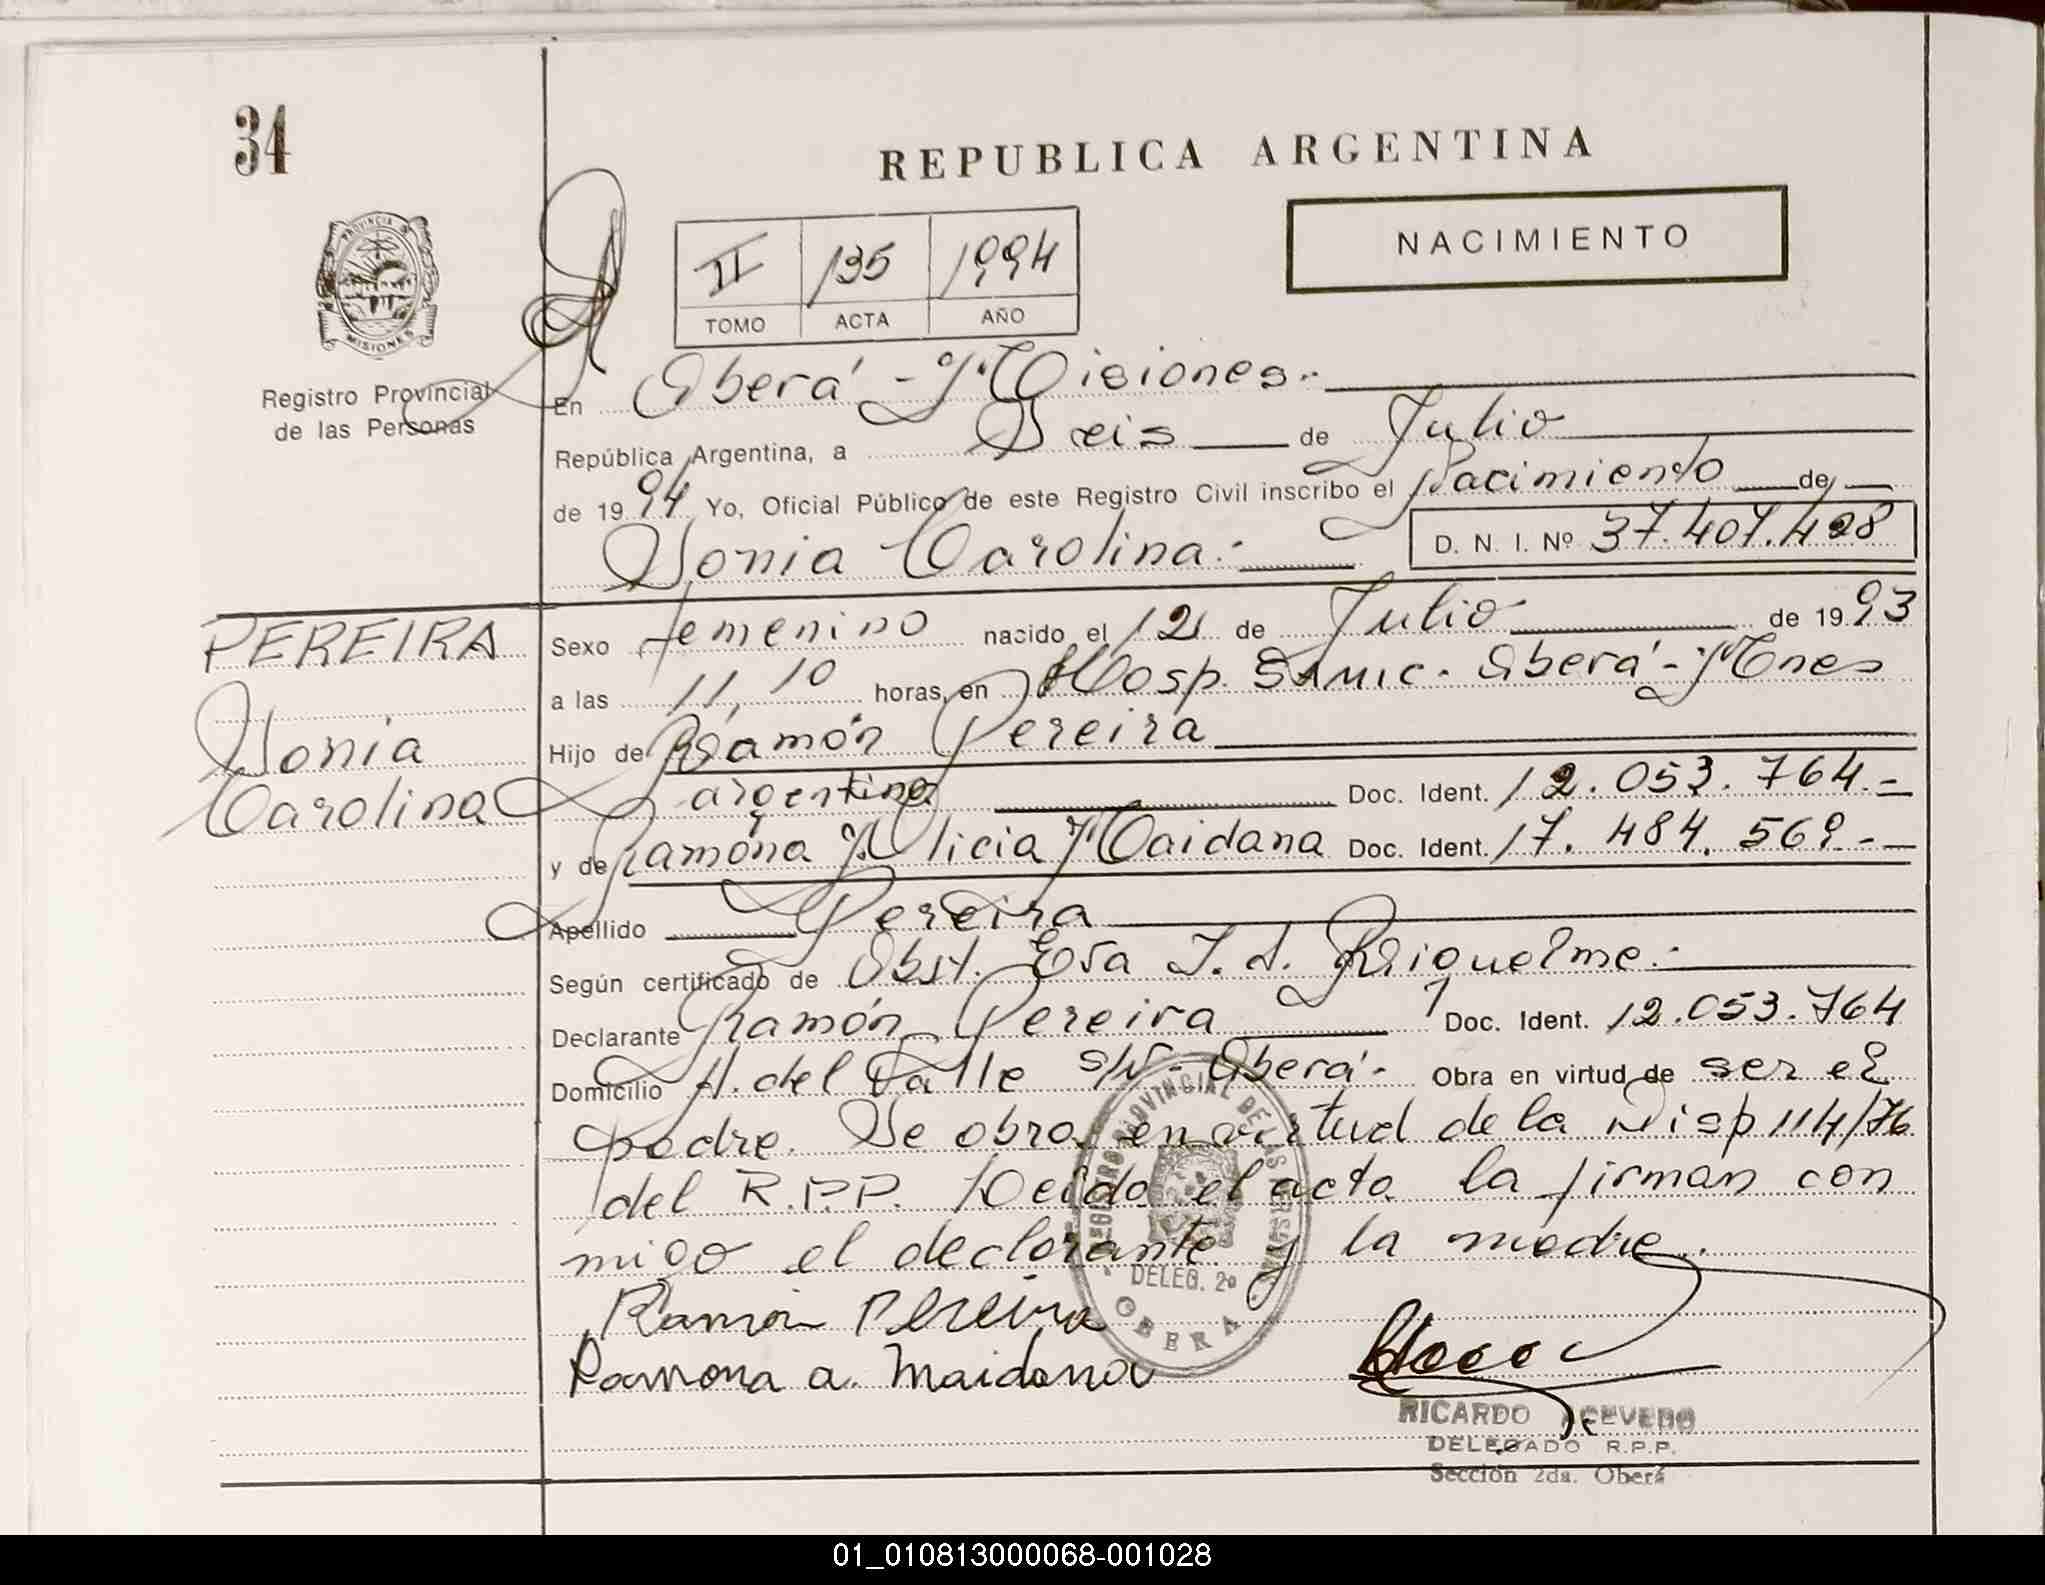 34
REPUBLICA ARGENTINA
NACIMIENTO
II 135 1994
TOMO ACTA AÑO
PROVINCIA D MISIONES
Registro Provincial
de las Personas
En Oberá - Misiones.-
República Argentina, a Seis de Julio
de 1994 Yo, Oficial Público de este Registro Civil inscribo el Nacimiento de
Sonia Carolina.- D. N. I. Nº 37.407.428
PEREIRA
Sonia
Carolina
Sexo femenino nacido el 12 de Julio de 1993
a las 11,10 horas, en Hosp. SAMIC. Oberá - Mnes
Hijo de Ramón Pereira
argentino Doc. Ident. 12.053.764.-
y de Ramona Alicia Maidana Doc. Ident. 17.484.569.-
Apellido Pereira
Según certificado de Obst. Eva I. S. Riquelme.-
Declarante Ramón Pereira Doc. Ident. 12.053.764
Domicilio A. del Valle s/N - Oberá - Obra en virtud de ser el
padre. Se obra en virtud de la Disp 114/76
del R.P.P. Leída el acta la firman con
migo el declarante y la madre.
REGISTRO PROVINCIAL DE LAS PERSONAS
DELEG. 2º
OBERA
Ramón Pereira
Ramona a. Maidana
RICARDO ACEVEDO
DELEGADO R.P.P.
Sección 2da. Oberá
01_010813000068-001028